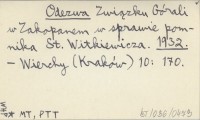 Odezwa Związku Górali
w Zakopanem w sprawie pom-
nika St. Witkiewicza. 1932.
- Wierchy (Kraków) 10: 170.
MT, PTT